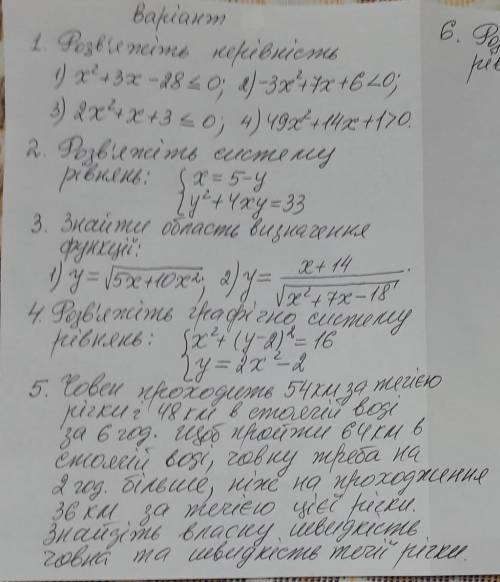 Варіант
1. Розв'яжіть нерівність
1) x²+3x-28≤0; 2) -3x²+7x+6<0;
3) 2x²+x+3≤0; 4) 49x²+14x+1>0.
2. Розв'яжіть систему
рівнянь: { x=5-y
y²+4xy=33
3. Знайти область визначення
функції:
1) y=√5x+10x²; 2) y= x+14 / √x²+7x-18.
4. Розв'яжіть графічно систему
рівнянь: { x²+(y-2)²=16
y=2x²-2
5. Човен проходить 54 км за течією
річки і 48 км в стоячій воді
за 6 год. Щоб пройти 64 км в
стоячій воді, човну треба на
2 год. більше, ніж на проходження
36 км за течією цієї річки.
Знайдіть власну швидкість
човна та швидкість течії річки.
6. Роз
рів